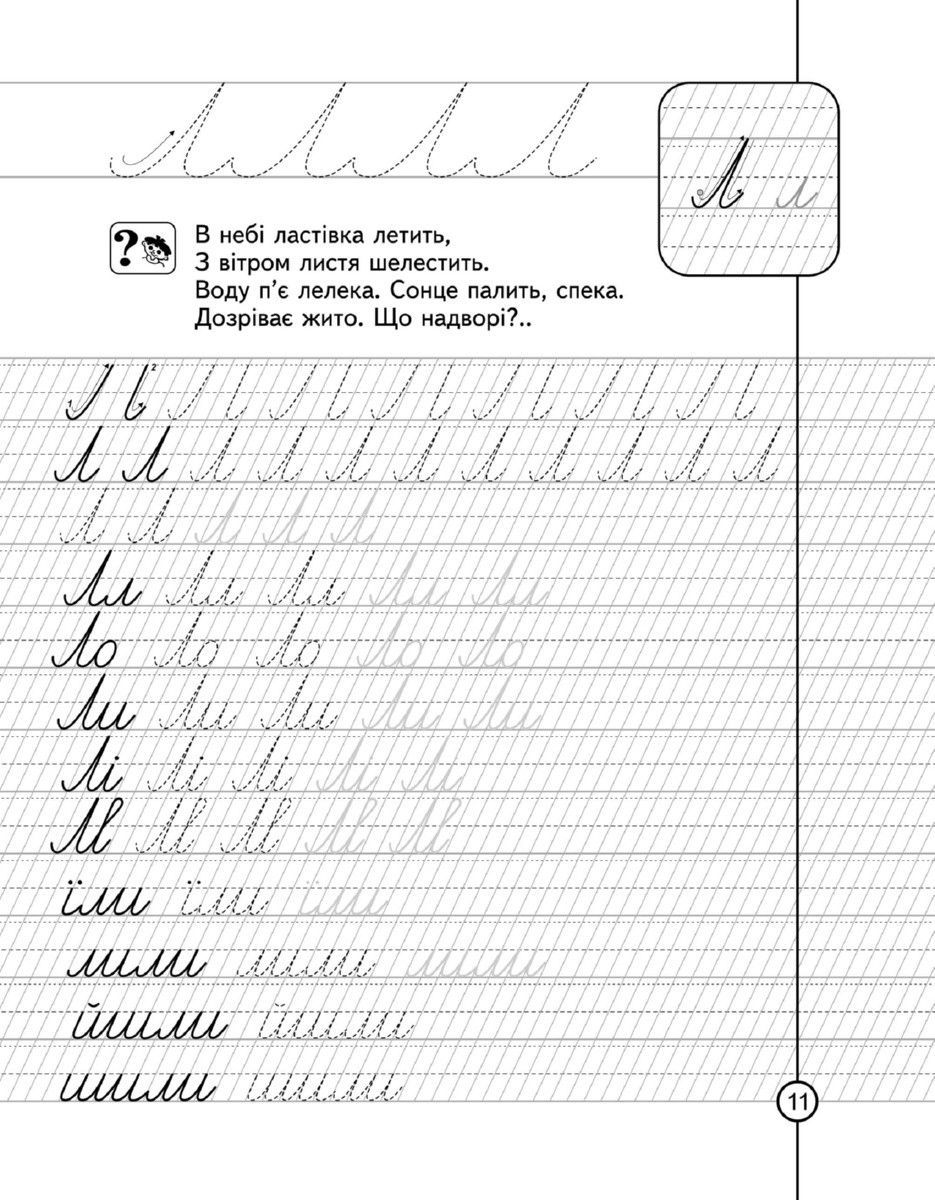 Л Л Л Л
Л л
В небі ластівка летить,
З вітром листя шелестить.
Воду п’є лелека. Сонце палить, спека.
Дозріває жито. Що надворі?..
Л Л Л Л Л Л Л Л Л Л Л
Л Л Л Л Л
Лл Лл Лл Лл Лл
Ло Ло Ло Ло Ло
Ли Ли Ли Ли Ли
Лі Лі Лі Лі Лі
Лв Лв Лв Лв Лв
їли їли їли
лили лили лили
йшли йшли
шили шили
11